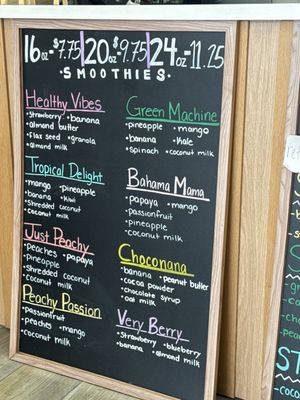 16oz-$7.75 20oz-$9.75 24oz-11.25
·SMOOTHIES·
Healthy Vibes
•Strawberry •banana
•almond butter
•flax seed •granola
•almond milk
Tropical Delight
•mango •pineapple
•banana •kiwi
•Shredded coconut
•coconut milk
Just Peachy
•Peaches •papaya
•Pineapple
•Shredded coconut
•Coconut milk
Peachy Passion
•passionfruit
•peaches •mango
•coconut milk
Green Machine
•pineapple •mango
•banana •Kale
•spinach •coconut milk
Bahama Mama
•papaya •mango
•passionfruit
•pineapple
•coconut milk
Choconana
•banana •peanut butter
•cocoa powder
•chocolate syrup
•oat milk
Very Berry
•Strawberry •blueberry
•banana •almond milk